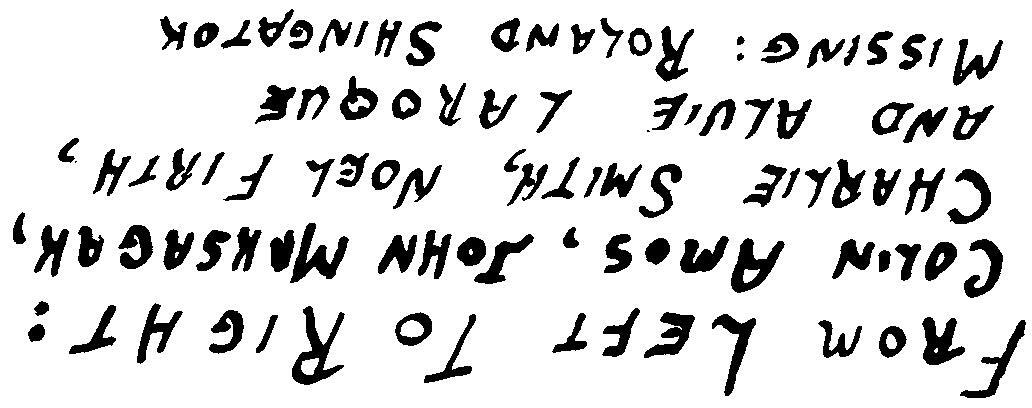 FROM LEFT TO RIGHT:
COLIN AMOS, JOHN MAKSAGAK,
CHARLIE SMITH, NOEL FIRTH,
AND ALVIE LAROQUE
MISSING: ROLAND SHINGATOK